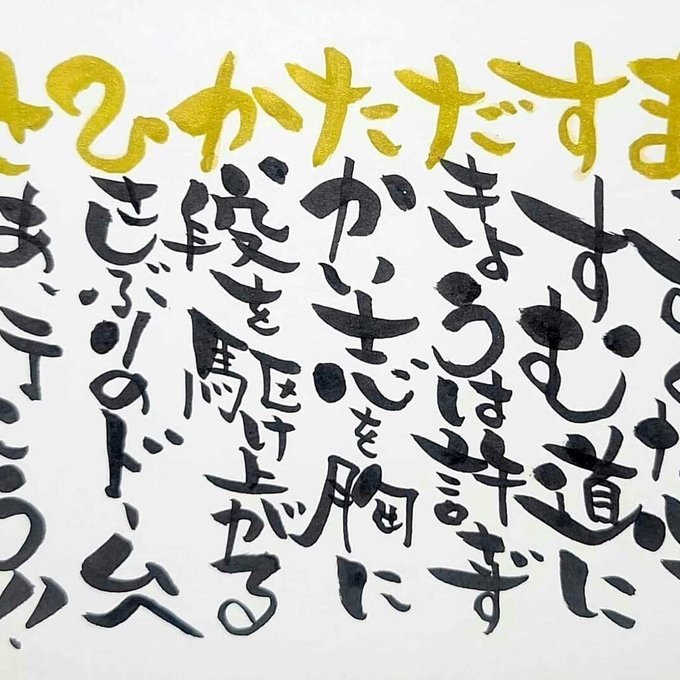 まっすぐな心で
すすむ道に
だきょうは許ず
たかい志を胸に
か段を駆け上がる
ひさしぶりのドームへ
さあ、行こう!!